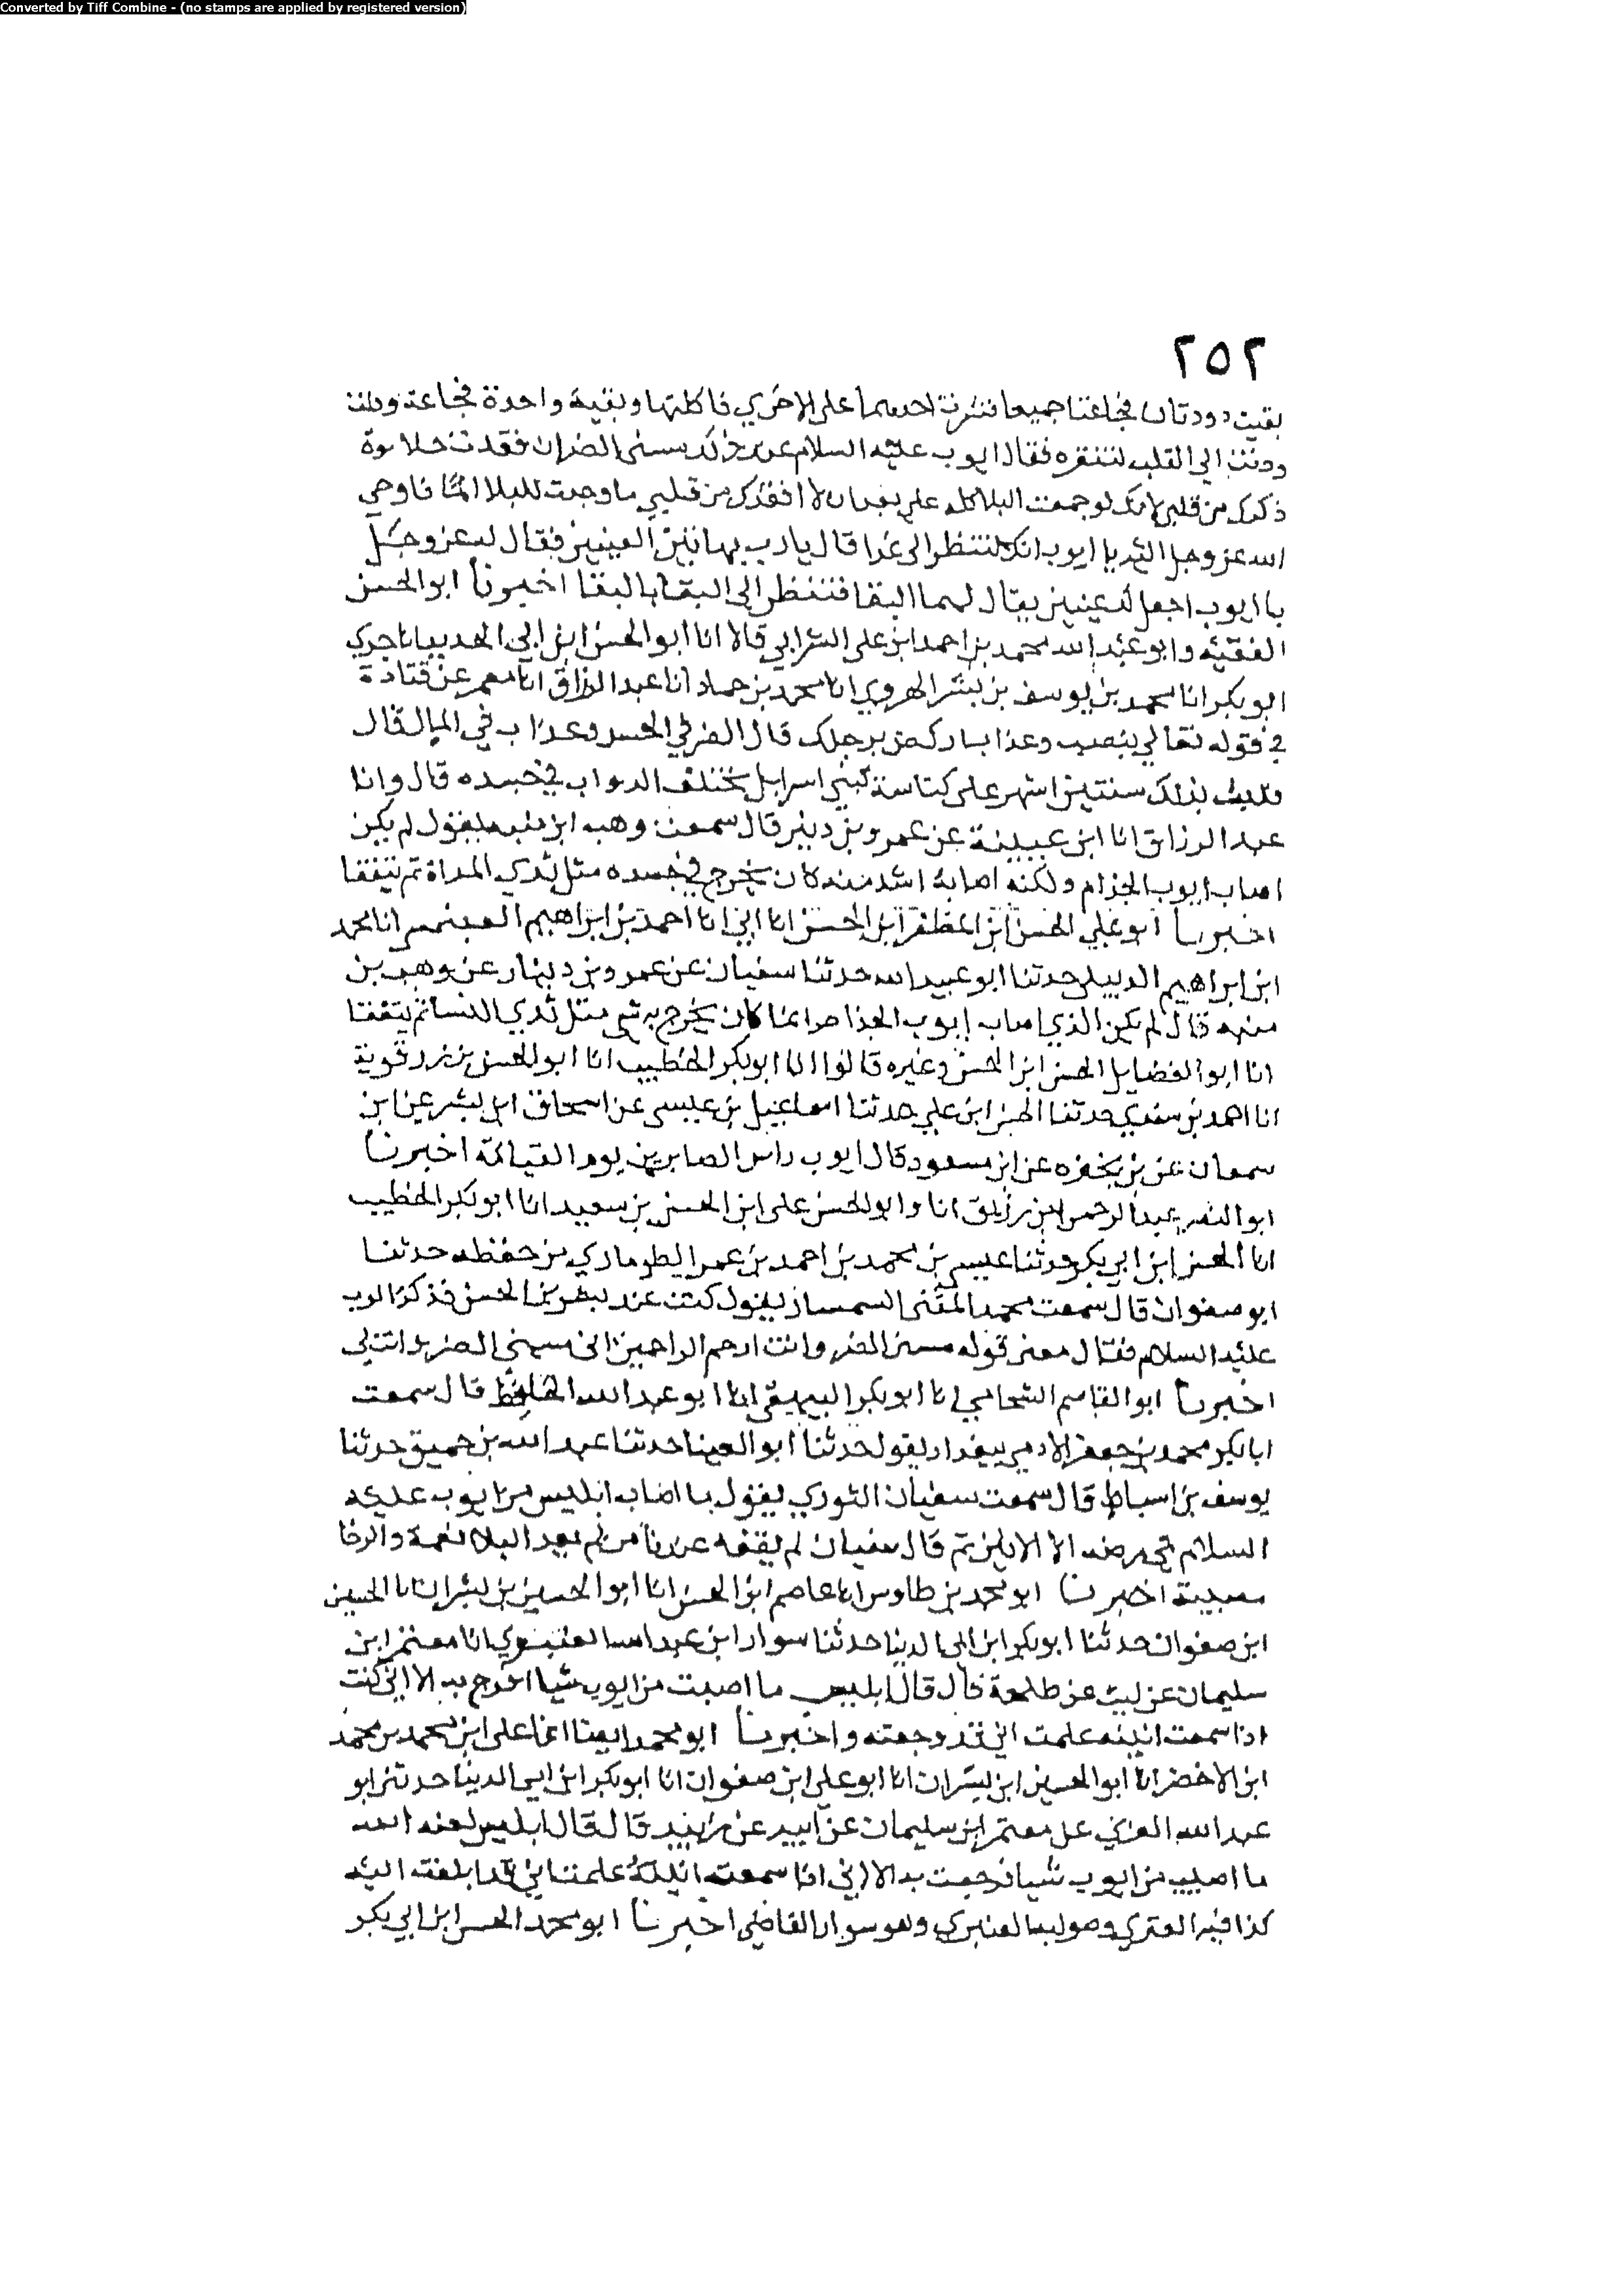 Converted by Tiff Combine - (no stamps are applied by registered version)
٢٥٢
بقيت دودتان فجاعتا جميعا فشرت احدهما على الاخري فاكلتها وبقية واحدة فجاعة ودنت
ودنت الى القلب لتنقره فقال ايوب عليه السلام عند ذلك مسنى الضران فقدت حلاوة
ذكرك من قلبي لانك لو جمعت البلا كله علي بعد ان لا افقدك من قلبي ما وجدت للبلا المًا فاوحي
الله عز وجل اليه يا ايوب انك لتنظر الى غدا قال يا رب بهاتين العينين فقال له عز وجل
يا ايوب اجعل لك عينين يقال لهما البقا فتنظر الى البقا بالبقا اخبرنا ابو الحسن
الفقيه وابو عبد الله محمد بن احمد ابن على الشرابي قالا انا ابو الحسن ابن ابي الحديد انا جدي
ابو بكر انا محمد بن يوسف بن بشر الهروي انا محمد بن حماد انا عبد الرزاق انا معمر عن قتادة
في قوله تعالي بنصب وعذاب اركض برجلك قال الضر في الجسد وعذاب في المال قال
فلبث بذلك سنتين اشهر على كناسة لبني اسرايل تختلف الدواب في جسده قال وانا
عبد الرزاق انا ابن عيينة عن عمرو بن دينر قال سمعت وهب ابن منبه يقول لم يكن
اصاب ايوب الجذام ولكنه اصابه اشد منه كان يخرج في جسده مثل ثدي المراة ثم يتفقا
اخبرنا ابو علي الحسن ابن المظفر ابن الحسن انا ابي انا احمد بن ابراهيم العبسمى انا محمد
ابن ابراهيم الديبلى حدتنا ابو عبيد الله حدثنا سفيان عن عمرو بن دينار عن وهب بن
منبه قال لم يكن الذي اصاب ايوب الجذام انما كان يخرج به شي مثل ثدي النسا ثم يتفقا
انا ابو الفضايل الحسن ابن الحسن وغيره قالوا انا ابو بكر الخطيب انا ابو الحسن بن زرقوية
انا احمد بن سندي حدثنا الحسن ابن علي حدثنا اسماعيل بن عيسى عن اسحاق ابن بشر عن ابن
سمعان عن بن بخفره عن ابن مسعود قال ايوب راس الصابرين يوم القيامة اخبرنا
ابو النصر عبد الرحمن ابن رزيق انا وابو الحسن على ابن الحسن بن سعيد انا ابو بكر الخطيب
انا الحسن ابن ابي بكر حدثنا عيسى بن محمد بن احمد بن عمر الطوماري من حفظه حدثنا
ابو صفوان قال سمعت محمد المقنى السمسار يقول كنت عند بشر بن الحسن فذكر ايوب
عليه السلام فقال معنى قوله مسنى الضر وانت ارحم الراحمين انى مسنى الضر وانت لي
اخبرنا ابو القاسم الشحامي انا ابو بكر البيهقى انا ابو عبد الله الحافظ قال سمعت
ابا بكر محمد بن جعفر الادمي ببغداد يقول حدثنا ابو العينا حدثنا عبد الله بن خميق حدثنا
يوسف بن اسباط قال سمعت سفيان الثوري يقول ما اصاب ابليس من ايوب عليه
السلام في مرضه الا الانين ثم قال سفيان لم يفقه عندنا من لم يعد البلا نعمة والرخا
مصيبة اخبرنا ابو محمد بن طاوس انا عاصم ابن الحسن انا ابو الحسين بن بشران انا الحسين
ابن صفوان حدثنا ابو بكر ابن ابي الدنيا حدثنا سوار ابن عبد الله العنبري انا معتمر ابن
سليمان عن ليث عن طلحة قال قال ابليس ما اصبت من ايوب شيا افرح به الا اني كنت
اذا سمعت انينه علمت اني قد وجعته واخبرنا ابو محمد ايضا انما على ابن محمد بن محمد
ابن الاخضر انا ابو الحسين ابن بشران انا ابو على ابن صفوان انا ابو بكر ابن ابي الدنيا حدثني ابو
عبد الله العنزي عن معتمر ابن سليمان عن ابيه عن زبيد قال قال ابليس لعنه الله
ما اصيب من ايوب شيا فرحت به الا اني اذا سمعت انينه علمت اني قد ابلغت اليه
كذا فيه العتري وهو ايضا العنبري وهو سوار القاضي اخبرنا ابو محمد الحسن ابن ابي بكر